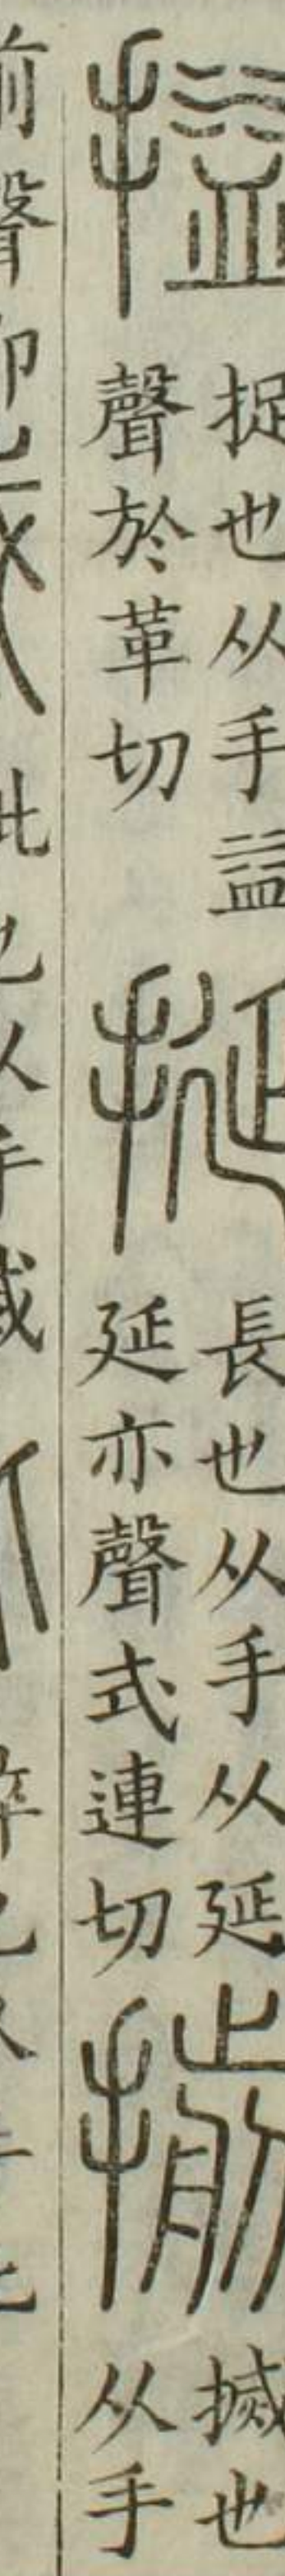 搤
捉也从手益
聲於革切
挻
長也从手从延
延亦聲式連切
揃
搣也
从手
前聲即淺切
搣
批也从手威